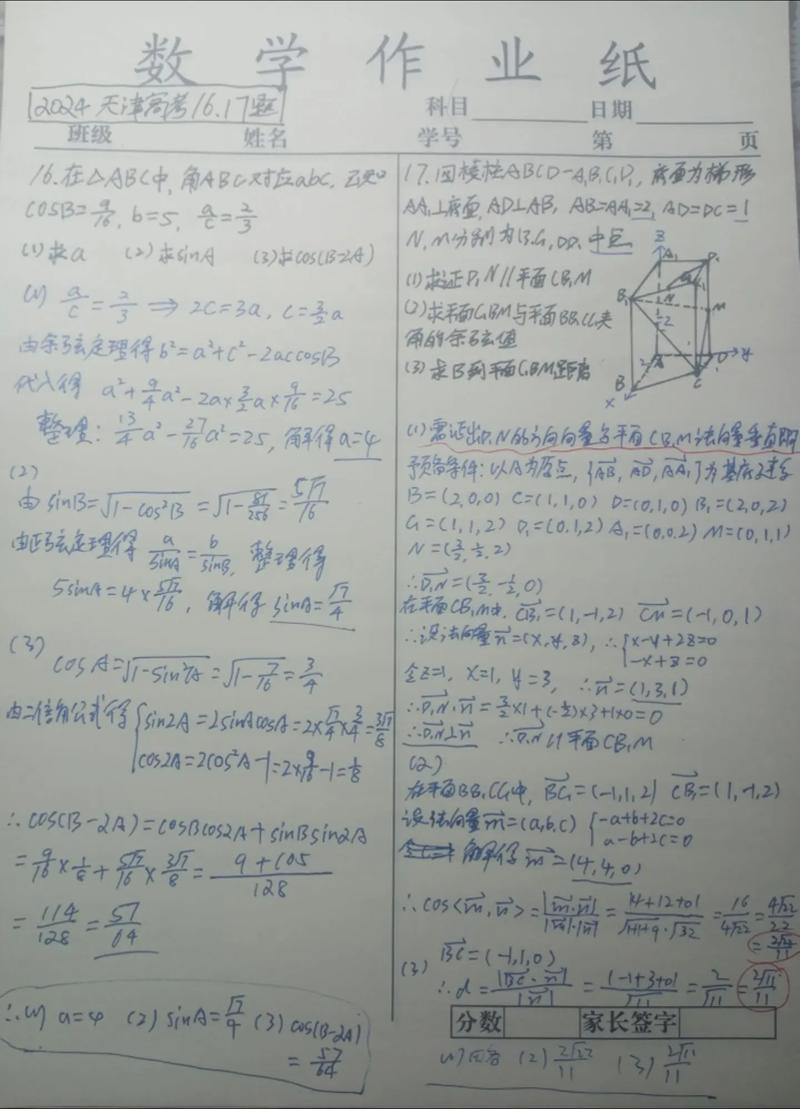 数学作业纸
2024天津高考16.17题
科目 日期
班级 姓名 学号 第 页
16.在△ABC中,角ABC对应abc,已知
cosB=9/16, b=5, a/c=2/3
(1)求a (2)求sinA (3)求cos(B-2A)
(1) a/c=2/3 ⇒ 2c=3a, c=3/2a
由余弦定理得b²=a²+c²-2accosB
代入得 a²+9/4a²-2a×3/2a×9/16=25
整理: 13/4a²-27/16a²=25, 解得a=4
(2)
由sinB=√(1-cos²B)=√(1-81/256)=5√7/16
由正弦定理得 a/sinA=b/sinB, 整理得
5sinA=4×5√7/16, 解得sinA=√7/4
(3)
cosA=√(1-sin²A)=√(1-7/16)=3/4
由二倍角公式得{sin2A=2sinAcosA=2×√7/4×3/4=3√7/8
cos2A=2cos²A-1=2×9/16-1=1/8
∴cos(B-2A)=cosBcos2A+sinBsin2A
=9/16×1/8+5√7/16×3√7/8=(9+105)/128
=114/128=57/64
∴(1) a=4 (2) sinA=√7/4 (3) cos(B-2A)
=57/64
17.四棱柱ABCD-A₁B₁C₁D₁,底面为梯形
AA₁⊥底面,AD⊥AB, AB=AA₁=2, AD=DC=1
N,M分别为B₁C₁,DD₁中点
(1)求证D₁N//平面CB₁M
(2)求平面CB₁M与平面BB₁C₁C夹
角的余弦值
(3)求B到平面CB₁M距离
Z
A₁
D₁
B₁
N
C₁
M
2
A
D
y
2
1
B
C
x
(1)需证出D₁N的方向向量与平面CB₁M法向量垂直即可
预备条件:以A为原点,{AB,AD,AA₁}为基底建系
B=(2,0,0) C=(1,1,0) D=(0,1,0) B₁=(2,0,2)
C₁=(1,1,2) D₁=(0,1,2) A₁=(0,0,2) M=(0,1,1)
N=(3/2,1/2,2)
∴D₁N=(3/2,-1/2,0)
在平面CB₁M中, CB₁=(1,-1,2) CM=(-1,0,1)
∴设法向量n=(x,y,z), ∴{x-y+2z=0
-x+z=0
令z=1, x=1, y=3, ∴n=(1,3,1)
∴D₁N·n=3/2×1+(-1/2)×3+1×0=0
∴D₁N⊥n ∴D₁N//平面CB₁M
(2)
在平面BB₁CC₁中, BC₁=(-1,1,2) CB₁=(1,-1,2)
设法向量m=(a,b,c) {-a+b+2c=0
a-b+2c=0
解得m=(4,4,0)
∴cos<m,n>=|m·n|/|m|·|n|=|4+12+0|/√(1+1+9)·√32=16/4√22=4√22/22
=2√22/11
(3) BC=(-1,1,0)
∴d=|BC·n|/|n|=|-1+3+0|/√11=2/√11=2√11/11
分数 家长签字
(1)四答 (2)2√22/11 (3)2√11/11